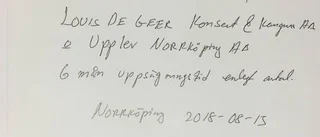 LOUIS DE GEER Konsert & Kongress AB
& Upplev NORRKöping AB
6 mån uppsägningstid enligt avtal.
NORRKöping 2018-08-15